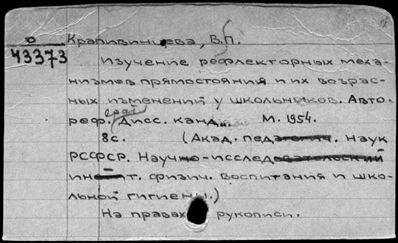 О
43373
Крапивинцева, В.П.
Изучение рефлекторных меха-
низмов прямостояния и их возрас-
ных изменений у школьников. Авто-
реф. Дисс. канд. М. 1954.
8с. (Акад. педагогич. Наук
РСФСР. Научно-исследовательский
инст. физич. воспитания и шко-
льной гигиены.)
На правах рукописи.